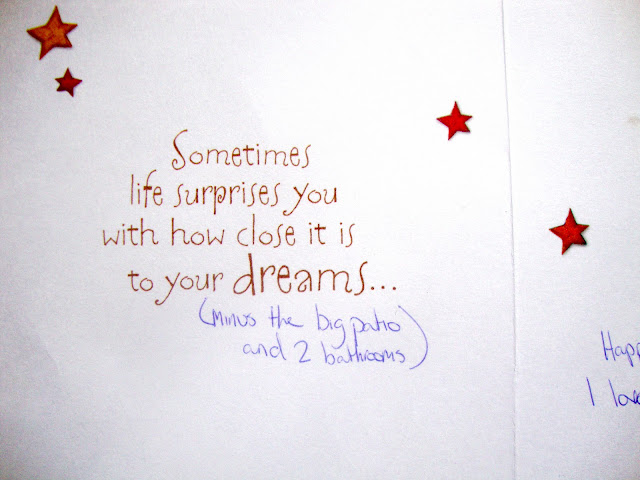 Sometimes
life surprises you
with how close it is
to your dreams...
(minus the big patio
and 2 bathrooms)
Happ
I love